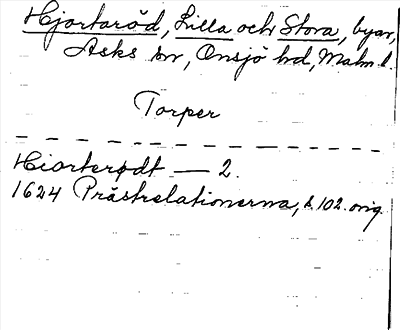 Hjortaröd, Lilla och Stora, byar,
Asks sn, Onsjö hd, Malm. l.
Torper
Hiorterødt — 2.
1624 Prästrelationerna, s. 102. orig.